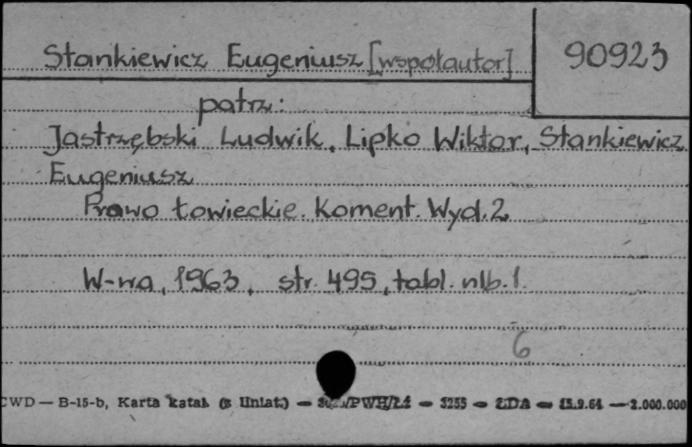 Stankiewicz Eugeniusz [współautor]
90923
patrz:
Jastrzębski Ludwik, Lipko Wiktor, Stankiewicz
Eugeniusz
Prawo Łowieckie. Koment. Wyd. 2
W-wa, 1963, str. 495, tabl. nlb. 1.
6
CWD — B-15-b, Karta katal. (z liniat.) — /PWH/Łź — 3255 — ŁDA — 15.9.64 — 2.000.000